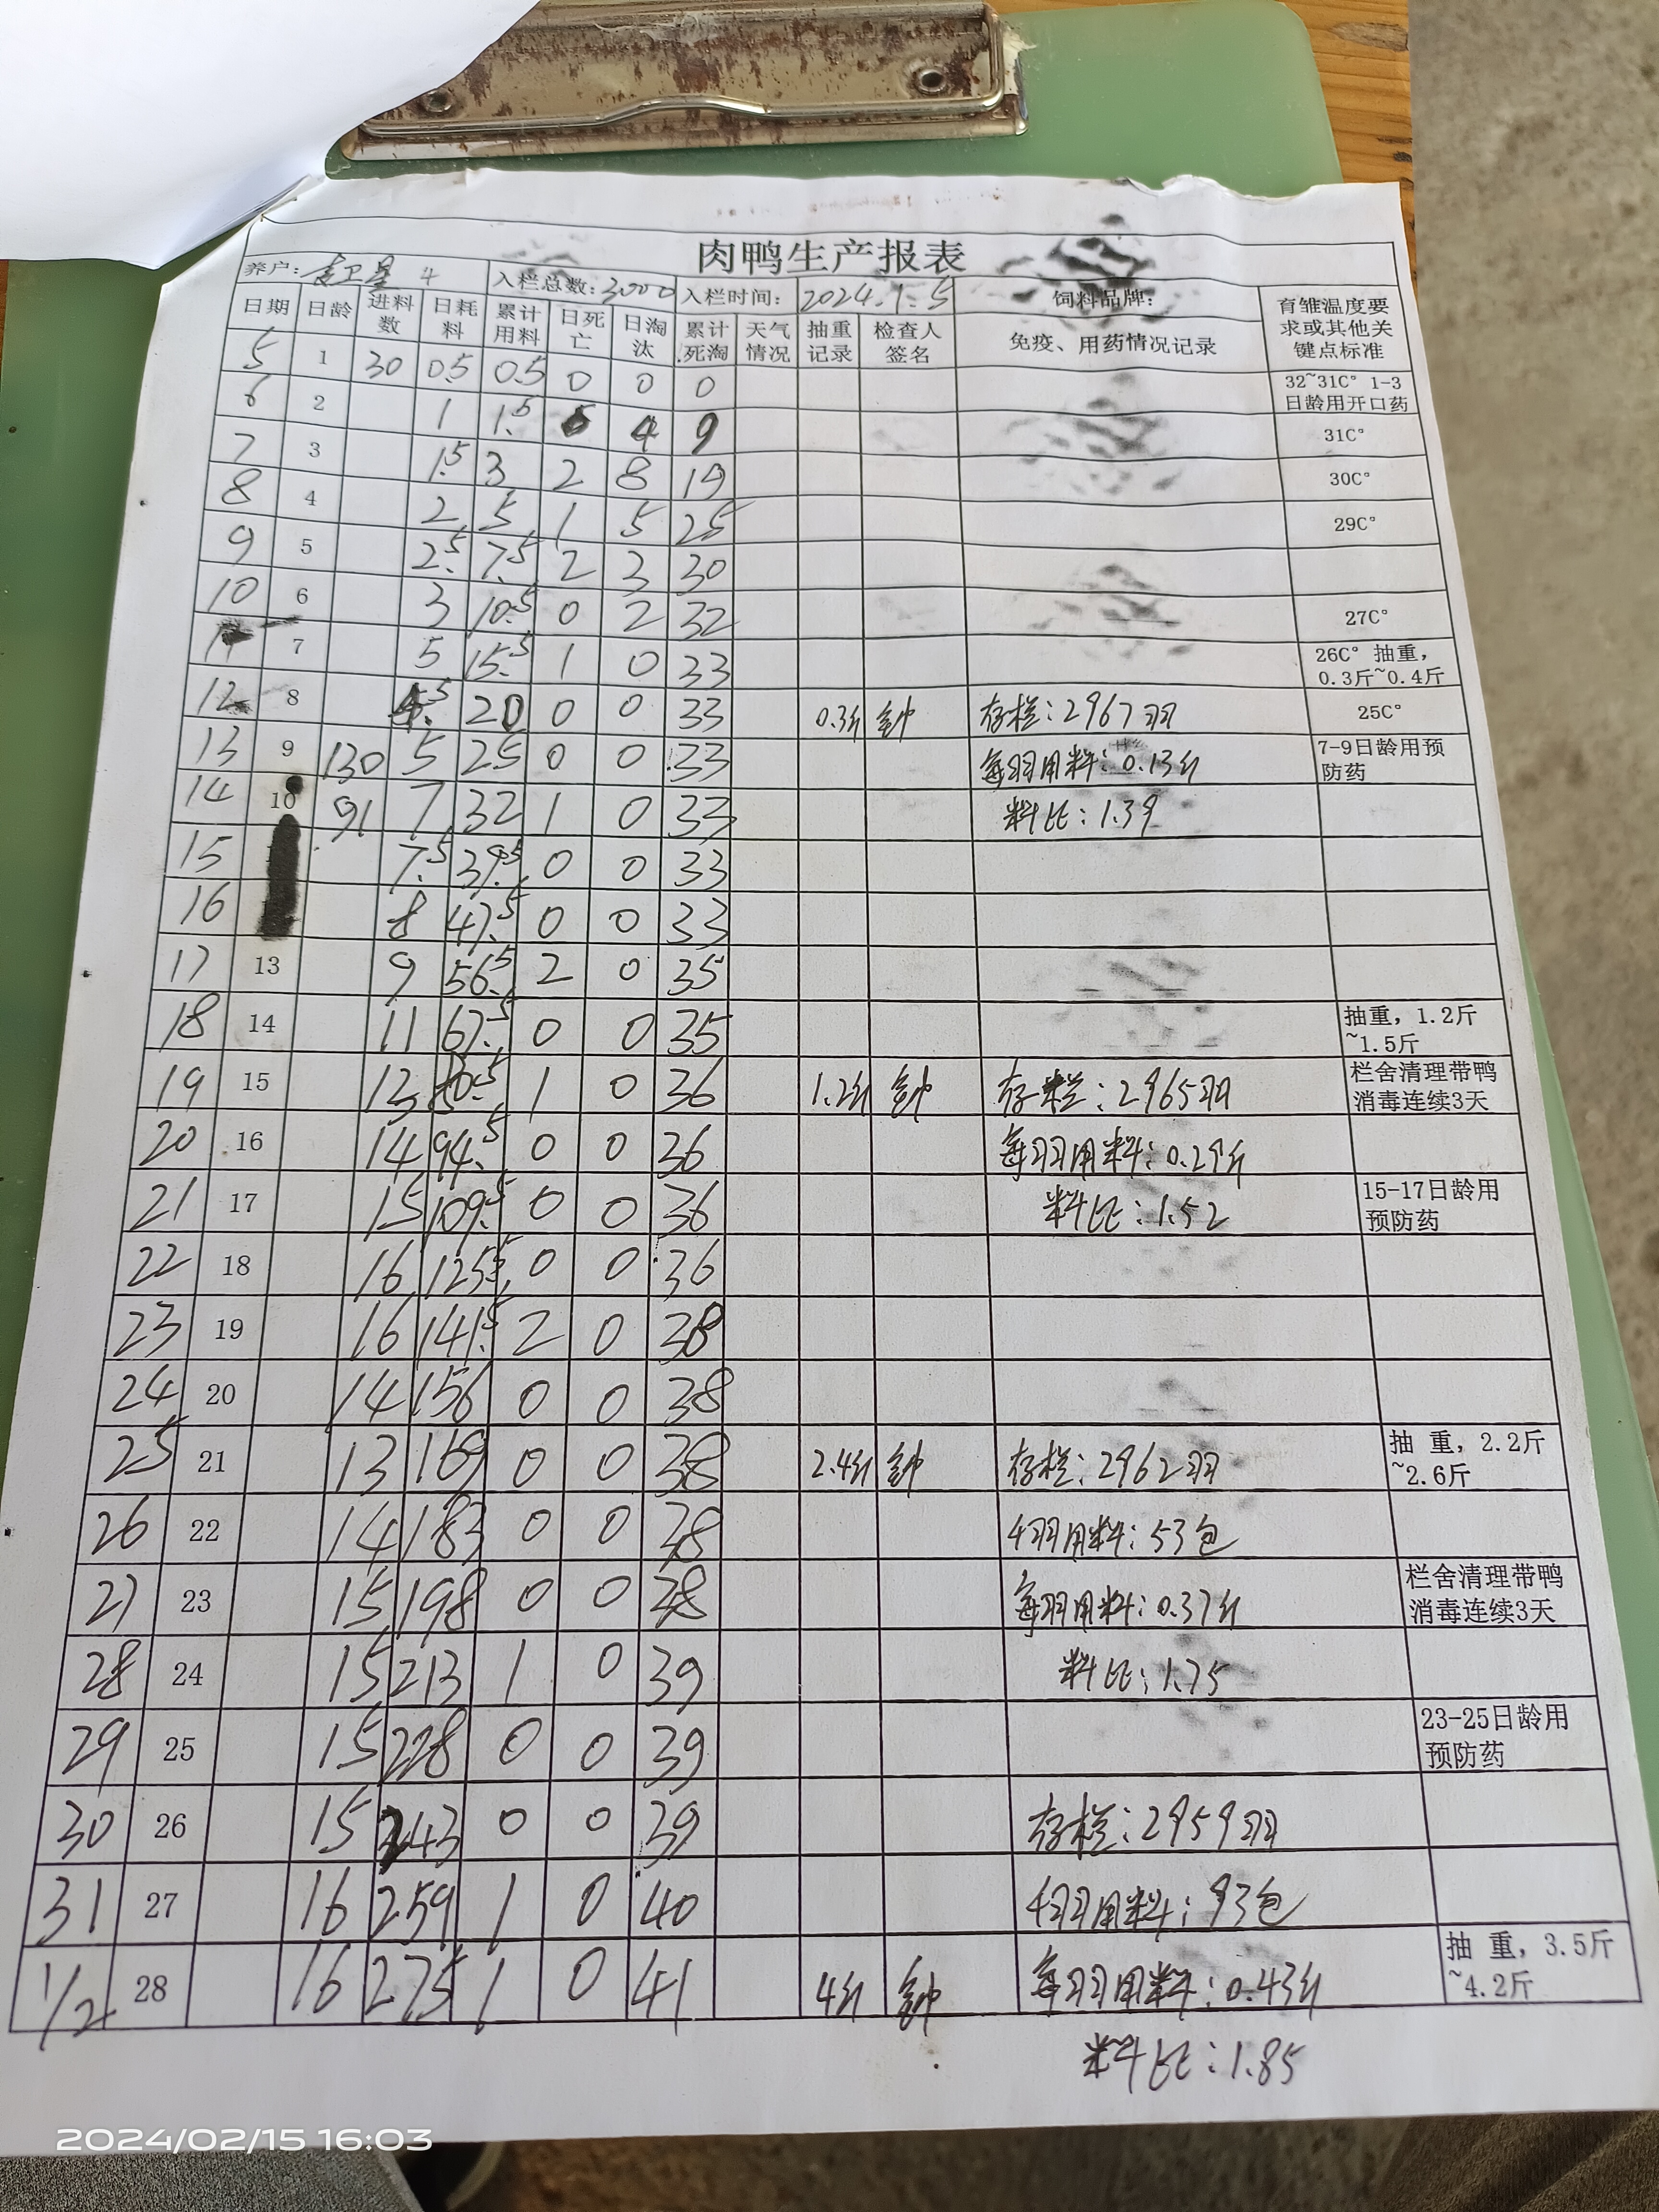 肉鸭生产报表
养户: 卫星 4 入栏总数: 3000 入栏时间: 2024.1.5 饲料品牌: 育雏温度要求或其他关键点标准
日期 日龄 进料数 日耗料 累计用料 日死亡 日淘汰 累计死淘 天气情况 抽重记录 检查人签名 免疫、用药情况记录
5 1 30 0.5 0.5 0 0 0 32~31C° 1-3日龄用开口药
6 2 1 1.5 4 9 31C°
7 3 1.5 3 2 8 19 30C°
8 4 2 5 1 5 25 29C°
9 5 2.5 7.5 2 3 30
10 6 3 10.5 0 2 32 27C°
11 7 5 15.5 1 0 33 26C° 抽重, 0.3斤~0.4斤
12 8 4.5 20 0 0 33 0.3斤 钟 存栏: 2967羽 25C°
13 9 130 5 25 0 0 33 每羽用料: 0.13斤 7-9日龄用预防药
14 10 91 7 32 1 0 33 料比: 1.39
15 7.5 39.5 0 0 33
16 8 47.5 0 0 33
17 13 9 56.5 2 0 35
18 14 11 67.5 0 0 35 抽重, 1.2斤~1.5斤
19 15 13 80.5 1 0 36 1.2斤 钟 存栏: 2965羽 栏舍清理带鸭消毒连续3天
20 16 14 94.5 0 0 36 每羽用料: 0.29斤
21 17 15 109.5 0 0 36 料比: 1.52 15-17日龄用预防药
22 18 16 125.5 0 0 36
23 19 16 141.5 2 0 38
24 20 14 156 0 0 38
25 21 13 169 0 0 38 2.4斤 钟 存栏: 2962羽 抽 重, 2.2斤~2.6斤
26 22 14 183 0 0 38 千羽用料: 53包
27 23 15 198 0 0 38 每羽用料: 0.37斤 栏舍清理带鸭消毒连续3天
28 24 15 213 1 0 39 料比: 1.75
29 25 15 228 0 0 39 23-25日龄用预防药
30 26 15 243 0 0 39 存栏: 2959羽
31 27 16 259 1 0 40 千羽用料: 93包
1/2 28 16 275 1 0 41 4斤 钟 每羽用料: 0.43斤 抽 重, 3.5斤~4.2斤
料比: 1.85
2024/02/15 16:03